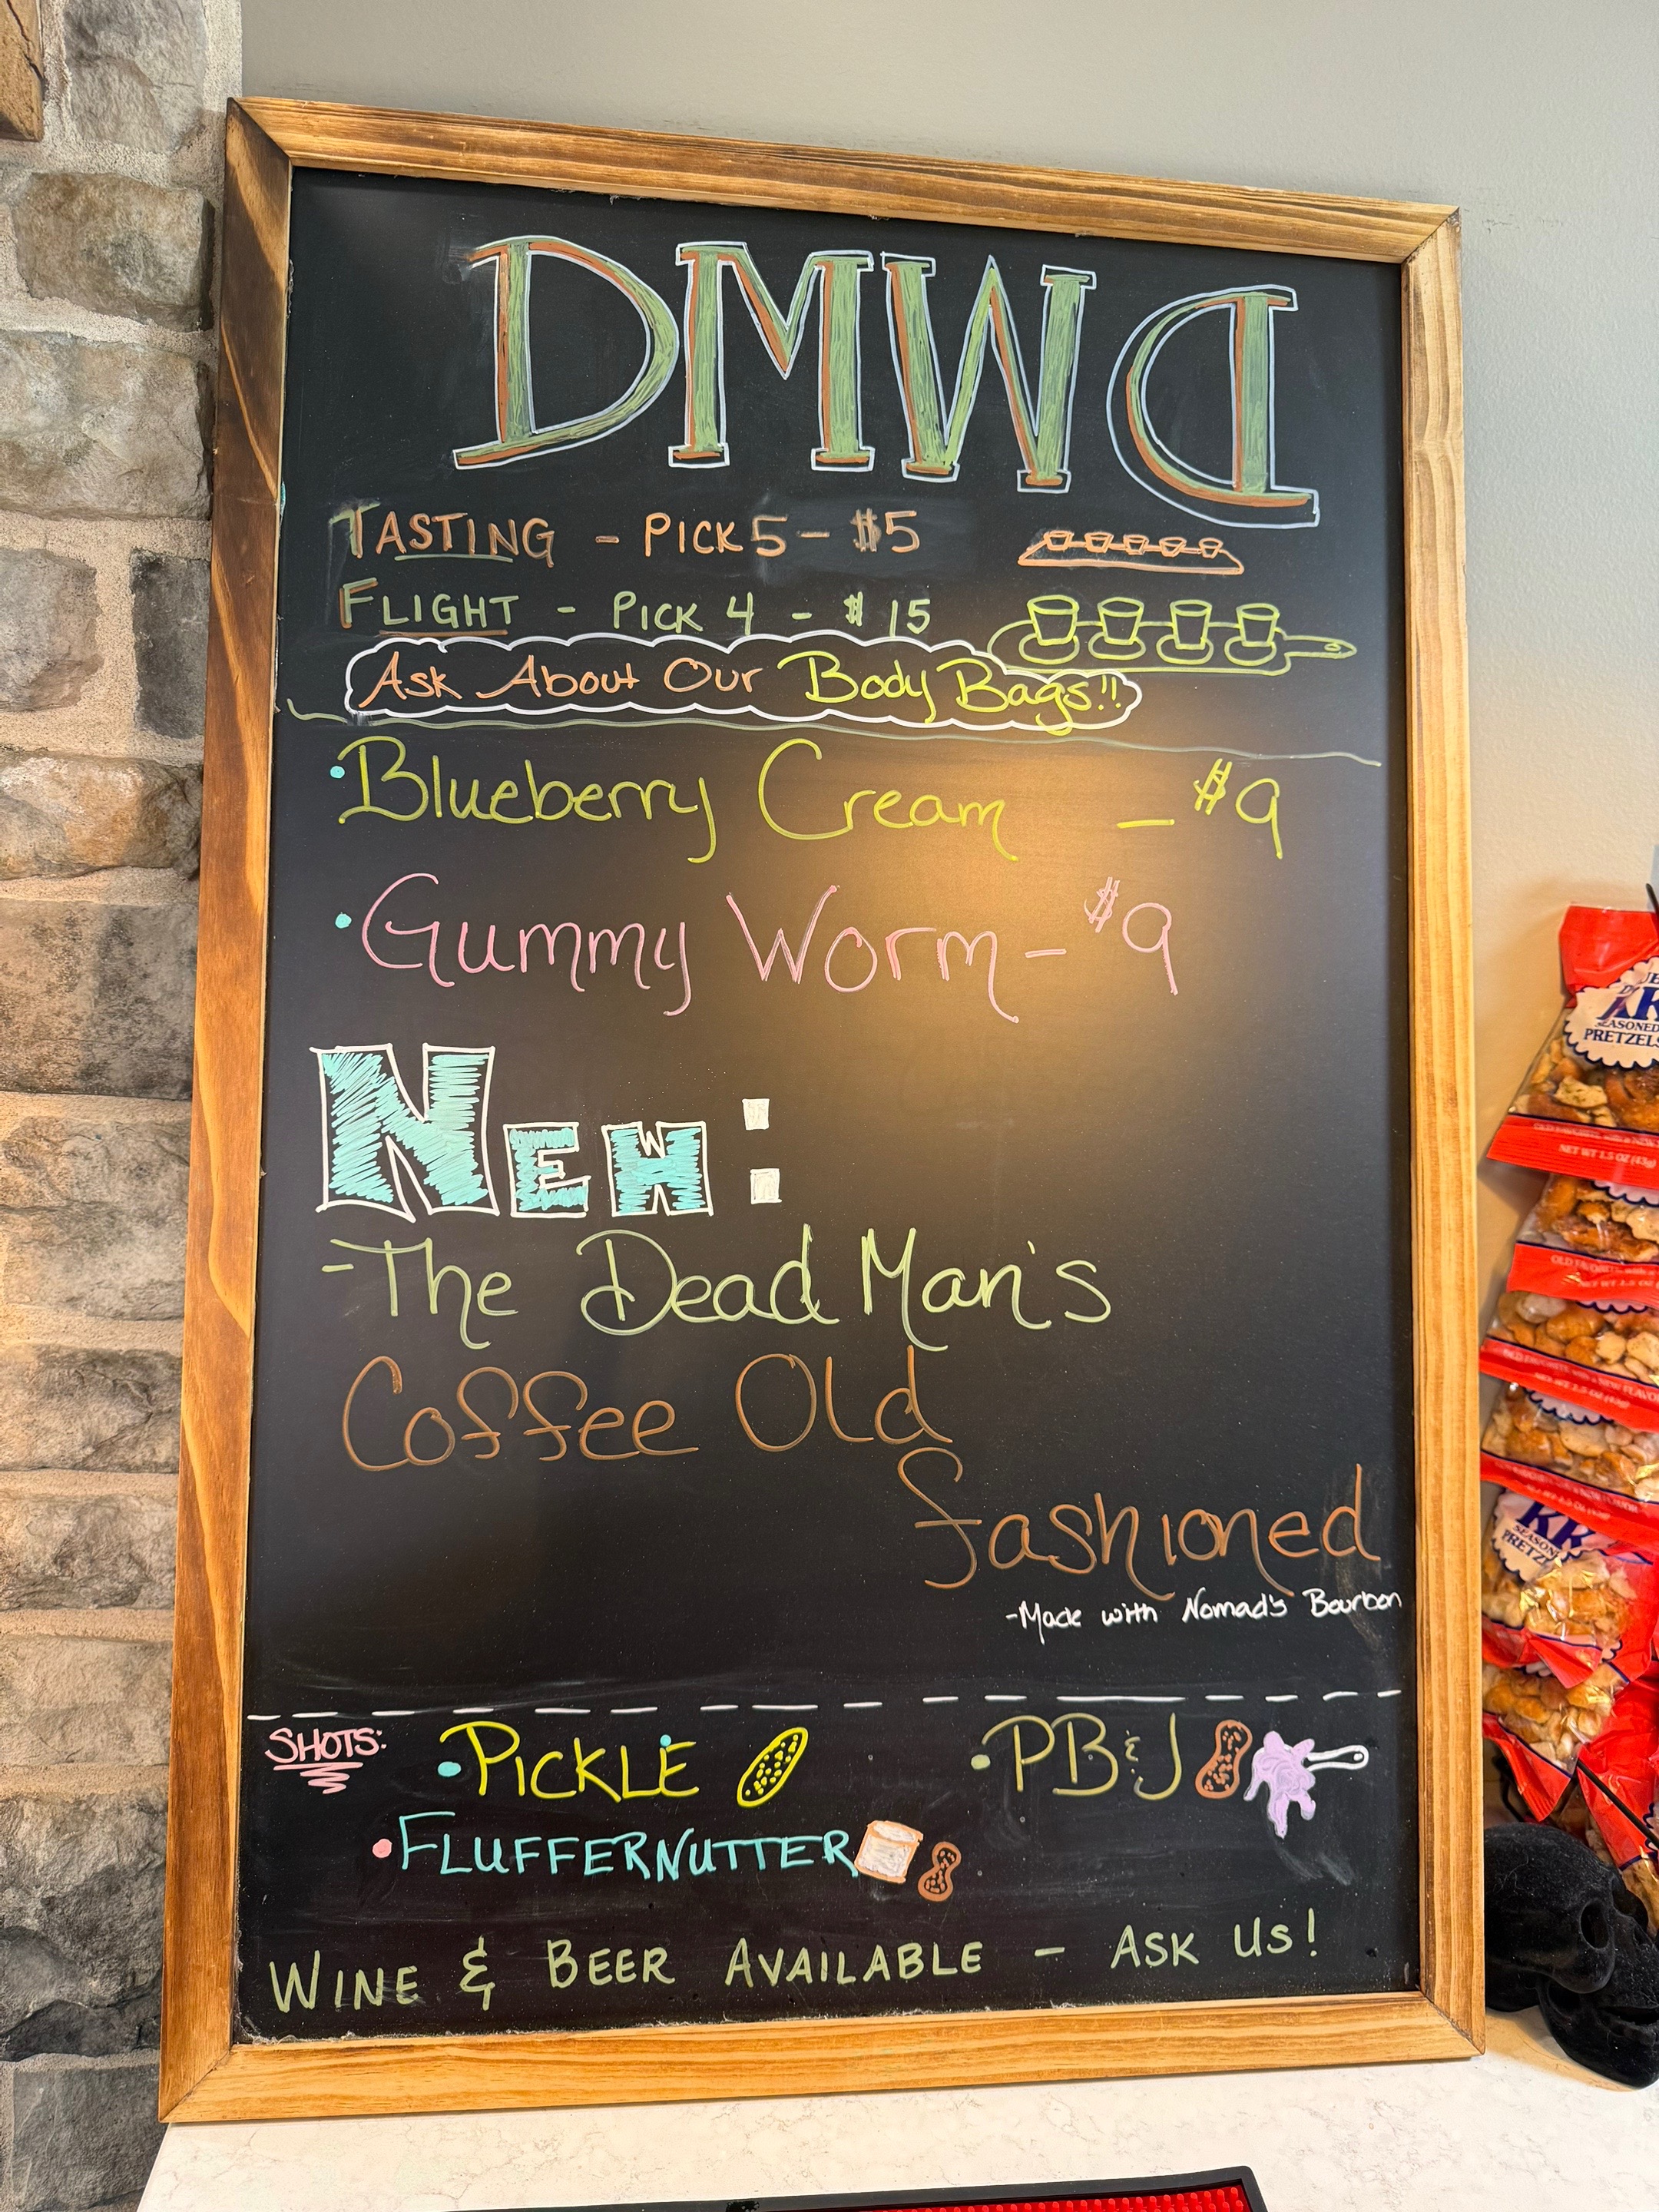 DMWD
TASTING - PICK 5 - $5
FLIGHT - PICK 4 - $15
Ask About Our Body Bags!!
• Blueberry Cream - $9
• Gummy Worm - $9
NEW:
- The Dead Man's
Coffee Old
fashioned
- Made with Nomad's Bourbon
SHOTS:
• PICKLE
• PB&J
• FLUFFERNUTTER
WINE & BEER AVAILABLE - ASK US!
PRETZELS
NET WT 1.5 OZ (43g)